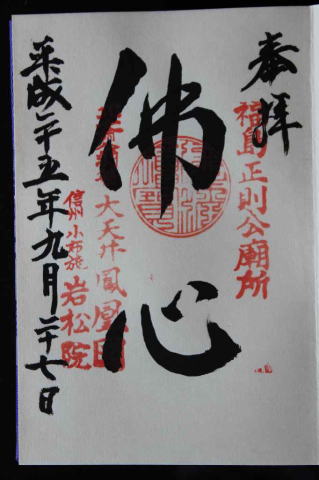 奉拝
福島正則公廟所
佛心
大天井鳳凰図
信州小布施
岩松院
平成二十五年九月二十七日